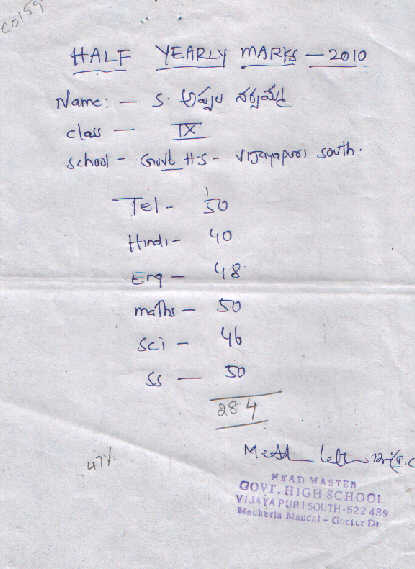 C0159
HALF YEARLY MARKS - 2010
Name: - S.
class - IX
school - Govt H-S - Vijayapuri south.
Tel - 50
Hindi - 40
Eng - 48
maths - 50
Sci - 46
SS - 50
284
47%
HEAD MASTER
GOVT. HIGH SCHOOL
VIJAYAPURI SOUTH-522 439
Macherla Mandal - Guntur Dt